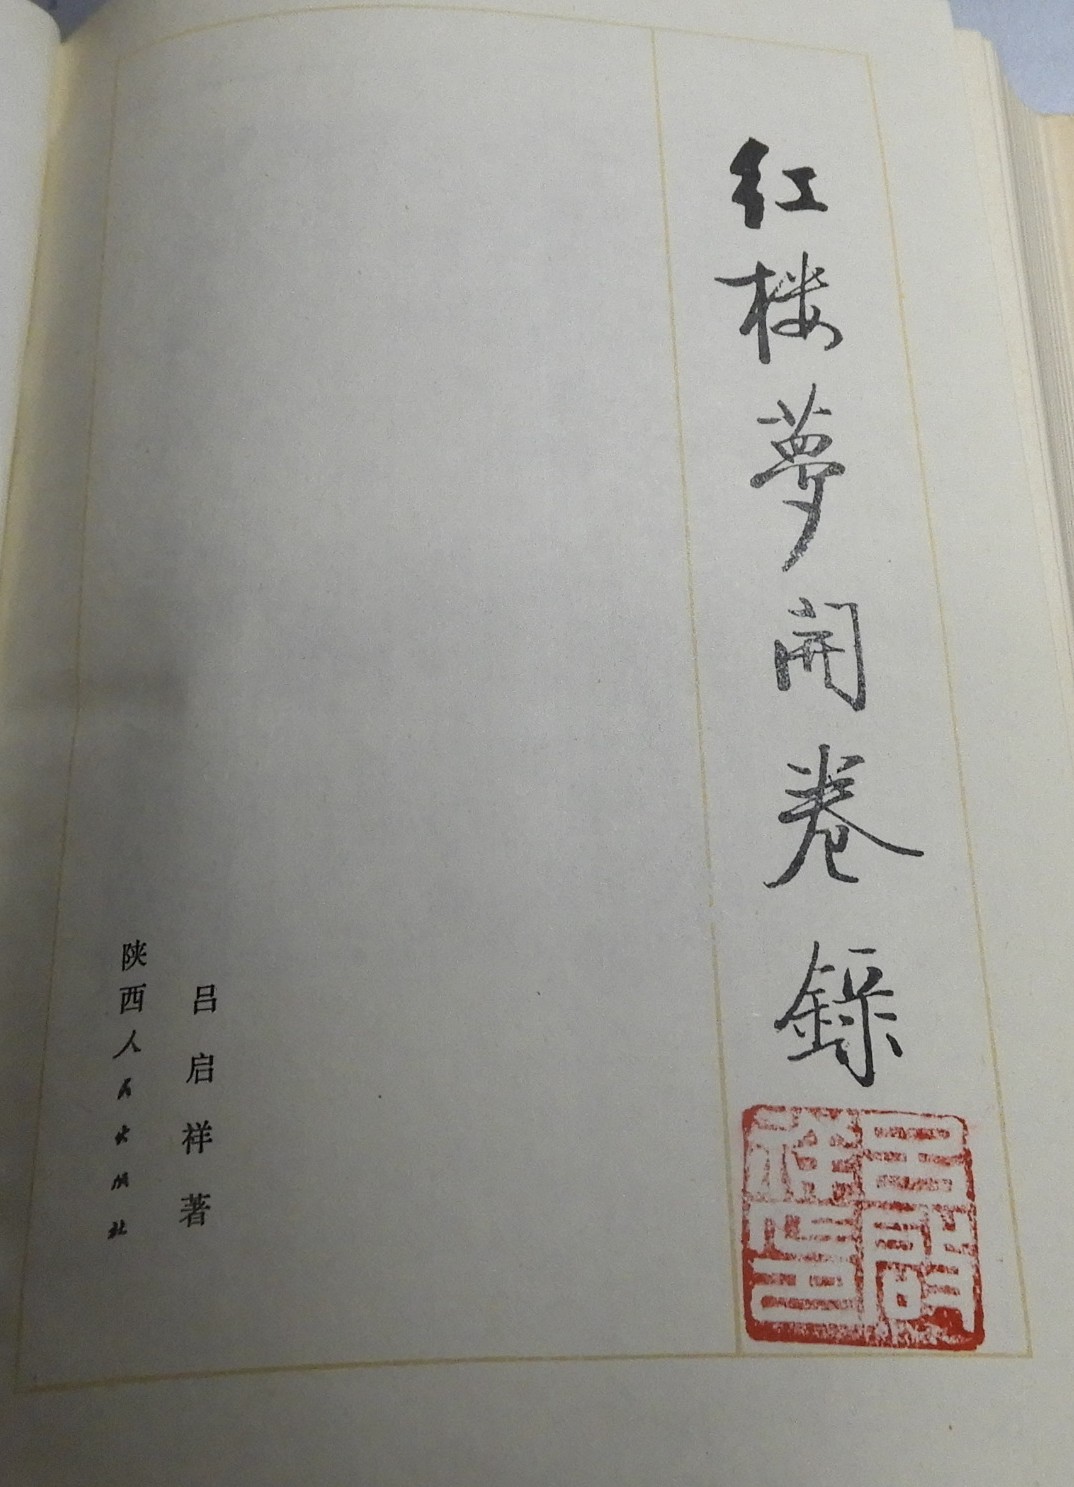 红楼夢開卷錄
吕启祥著
陕西人民出版社